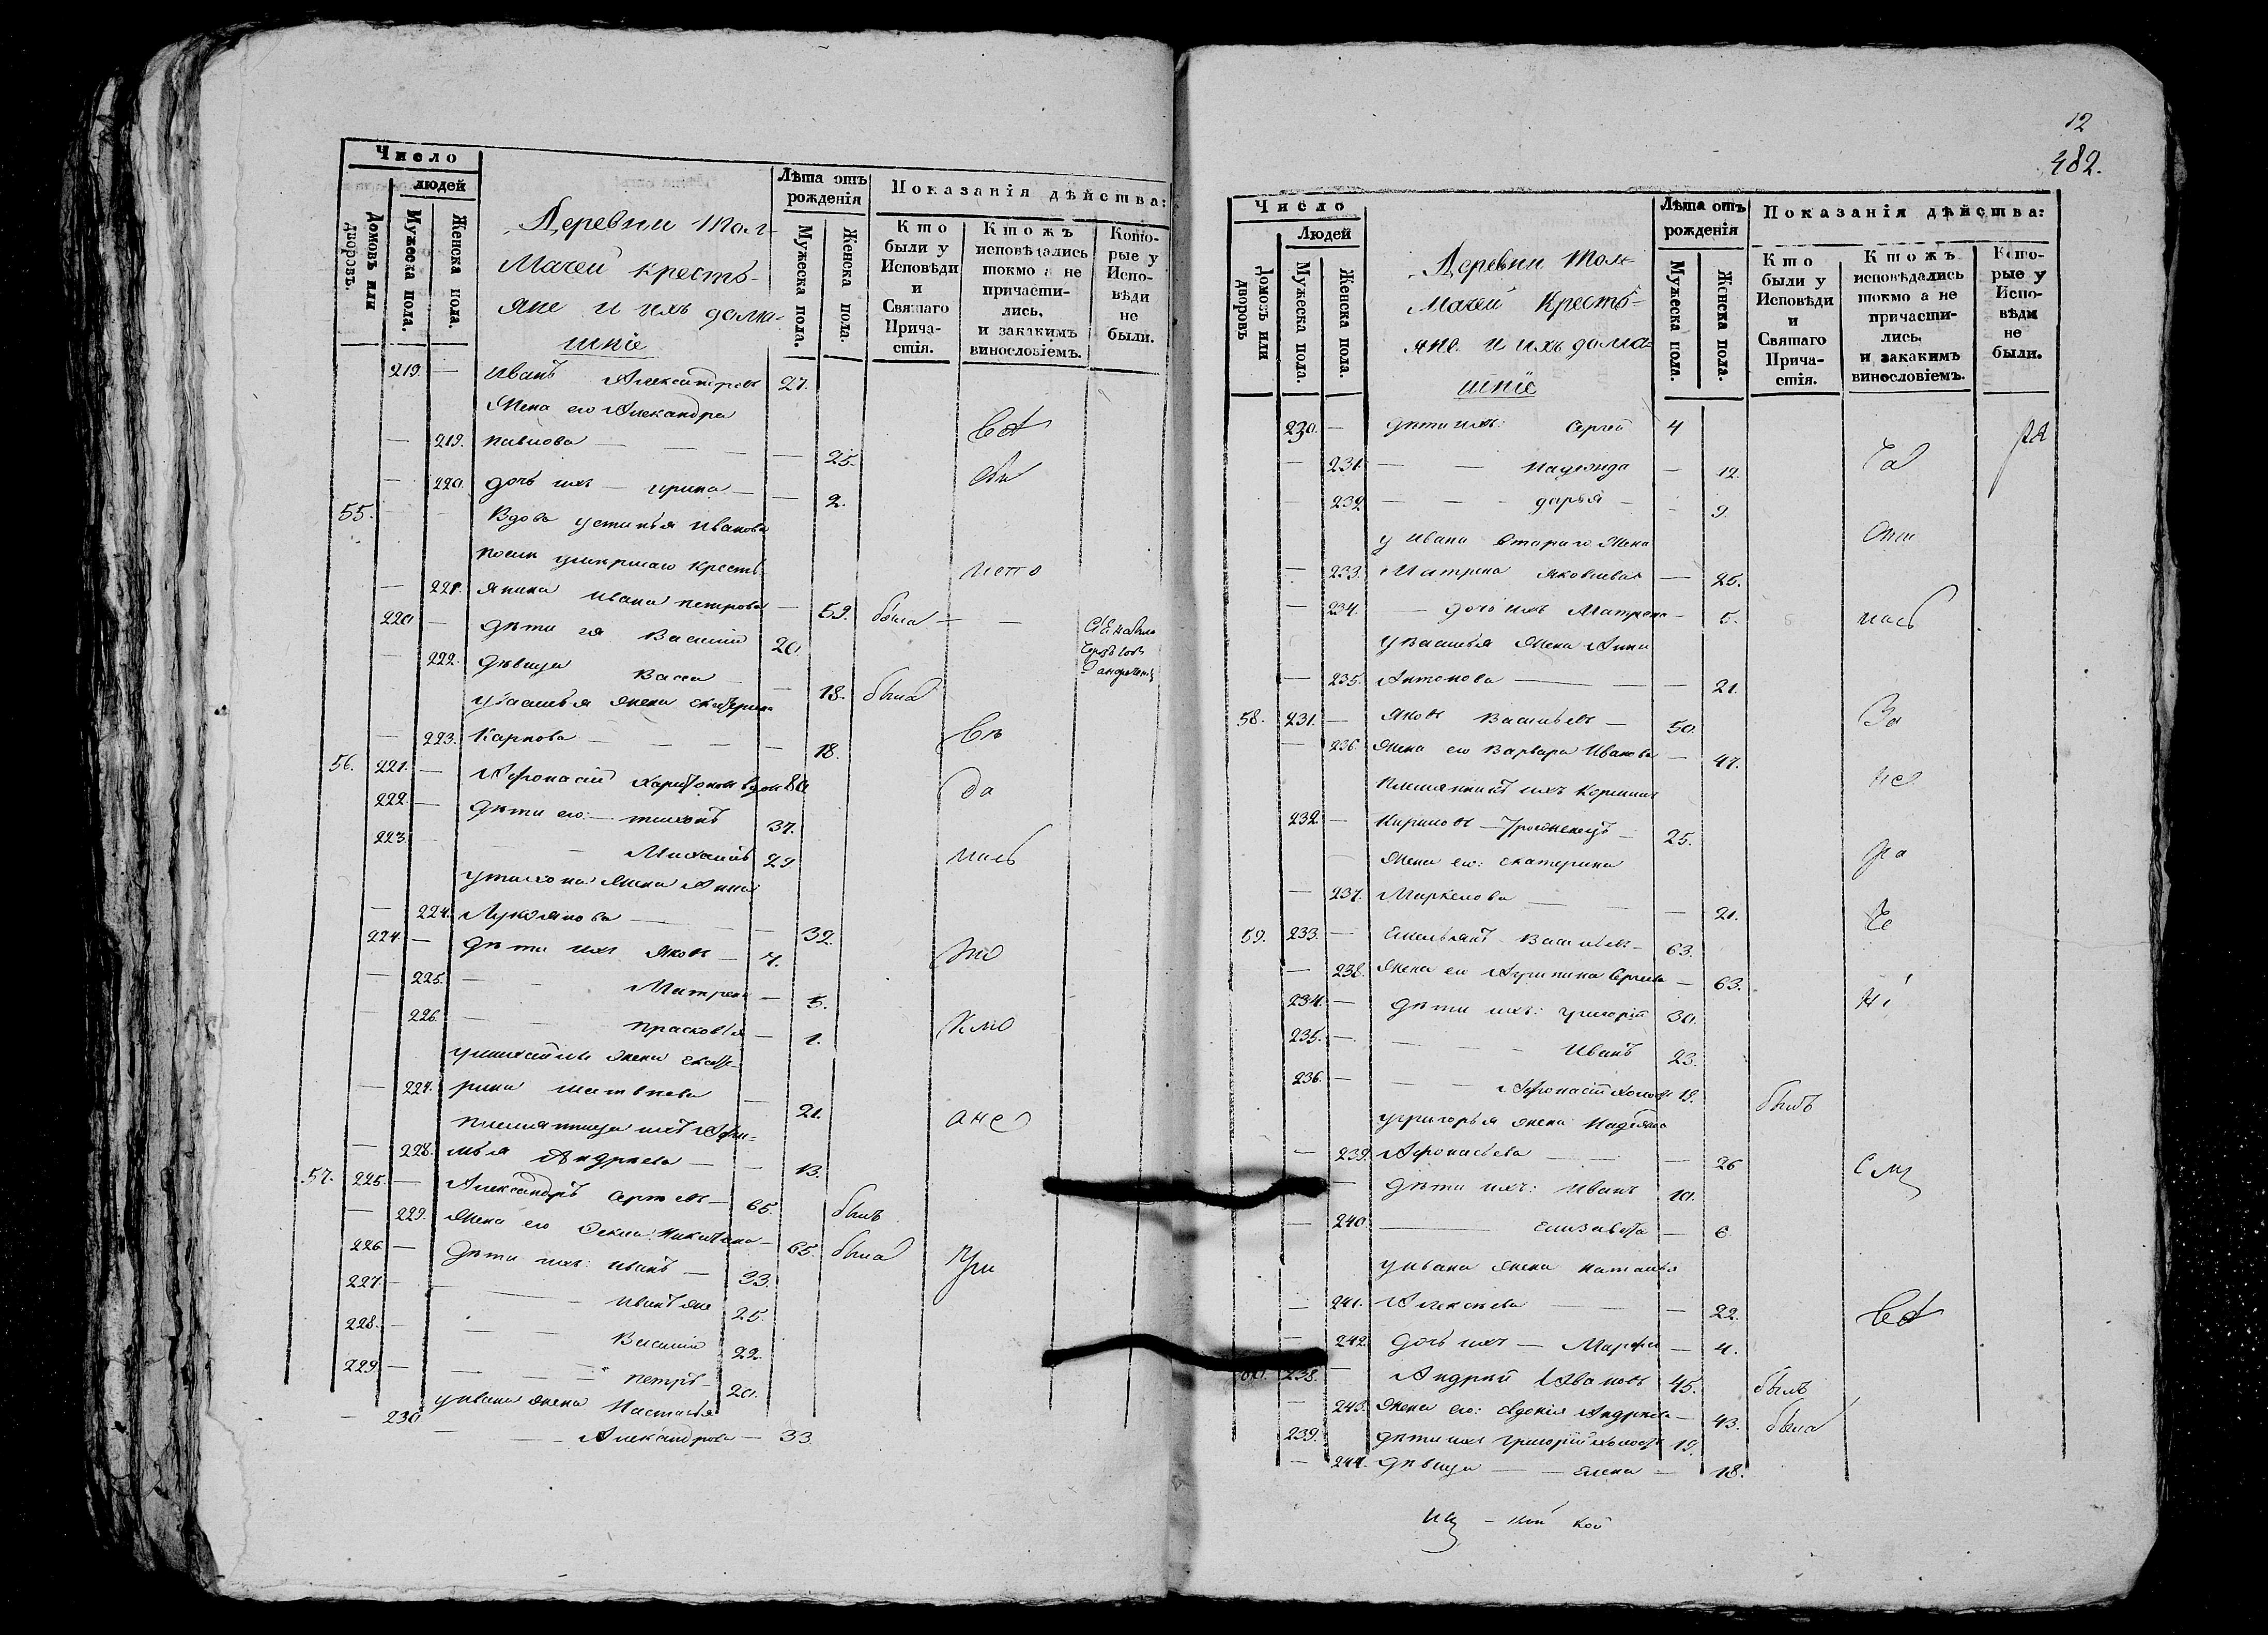 Число
людей
Домовъ или дворовъ.
Мужеска пола.
Женска пола.
Деревни Тол-
мачей крестъ-
яне и ихъ дома-
шніе
Лѣта отъ рожденія
Мужеска пола.
Женска пола.
Показанія дѣйства:
Кто были у Исповѣди и Святаго Прича- стія.
Ктожъ исповѣдались токмо а не причасти- лись, и закакимъ винословіемъ.
Кото- рые у Испо- вѣди не были.
219. — Иванъ Александровъ 27.
Жена его Александра
— 219. Павлова — — — 25.
— 220. дочь ихъ — Ирина — — 2.
55. — — Вдова Устинья Иванова
после умершаго крестъ-
— 221. янина Ивана Петрова — 59. была — —
220 — дѣти ея Василий 20
— 222. дѣвица Васса — 18. была
у Василья жена Екатерина
— 223. Карпова — — — — 18.
56. 221. — Афонасій Харитоновъ вдов 80
222. — дѣти его: — Тихонъ 37.
223. — — Михаилъ 29
у Тихона жена Анна
— 224. Лукьянова — — 32.
224. — дѣти ихъ Яковъ — 7.
— 225. — — Матрена — 5.
— 226. — — Прасковья — 1.
у Михайлы жена Екате-
— 227. рина Матвѣева — 21.
племянница ихъ Афи-
— 228. мья Андреева — — 13.
57. 225. — Александръ Сергѣевъ — 65. былъ
— 229. Жена его Фекла Никитина — 65. была
226. — дѣти ихъ: Иванъ — 33.
227. — — — Иванъ же 25.
228. — — — Василий 22.
229 — — — Петръ — 20.
у Ивана жена Настасья
— 230 — — Александрова — 33.
12
482.
Число
Людей
Домовъ или дворовъ
Мужеска пола.
Женска пола.
Деревни Тол-
мачей Крестъ-
яне. и ихъ дома-
шніе
Лѣта отъ рожденія
Мужеска пола.
Женска пола.
Показанія дѣйства:
Кто были у Исповѣди и Святаго Прича- стія.
Ктожъ исповѣдались токмо а не причасти- лись, и закакимъ винословіемъ.
Кото- рые у Испо- вѣди не были.
230. — дѣти ихъ: Сергей 4
— 231. — — Надежда — 12.
— 232 — — — Дарья — — 9.
у Ивана Старшаго жена
— 233. Матрена Яковлева — 25.
— 234. — дочь ихъ Матрена — 5.
у Василья жена Анна
— 235. Антонова — — 21.
58. 231. — Яковъ Васильевъ — 50.
— 236 Жена его Варвара Иванова — 47.
Племянникъ ихъ
232. — Кириловъ — 25.
Жена его: Екатерина
— 237. Маркелова — — — 21.
59. 233. — Емельянъ Васильевъ — 63.
— 238. Жена его Агрипина Сергеева — 63.
234. — дѣти ихъ: Григорій 30.
235. — — — — Иванъ 23.
236. — — — Афонасій холостъ 19. былъ
у Григорья жена Надежда
— 239. Афонасьева — — — 26
— дѣти ихъ: Иванъ 10.
— 240. — Елизавета — 6.
у Ивана жена Наталья
— 241. Алексеева — — — 22.
— 242. дочь ихъ — Марфа — 4.
60. 238. — Андрей Ивановъ 45. былъ
— 243. Жена его: Евдокія Андреева — 43. была
239. дѣти ихъ Григорій холостъ 19.
— 244. дѣвица — — Елена — 18.